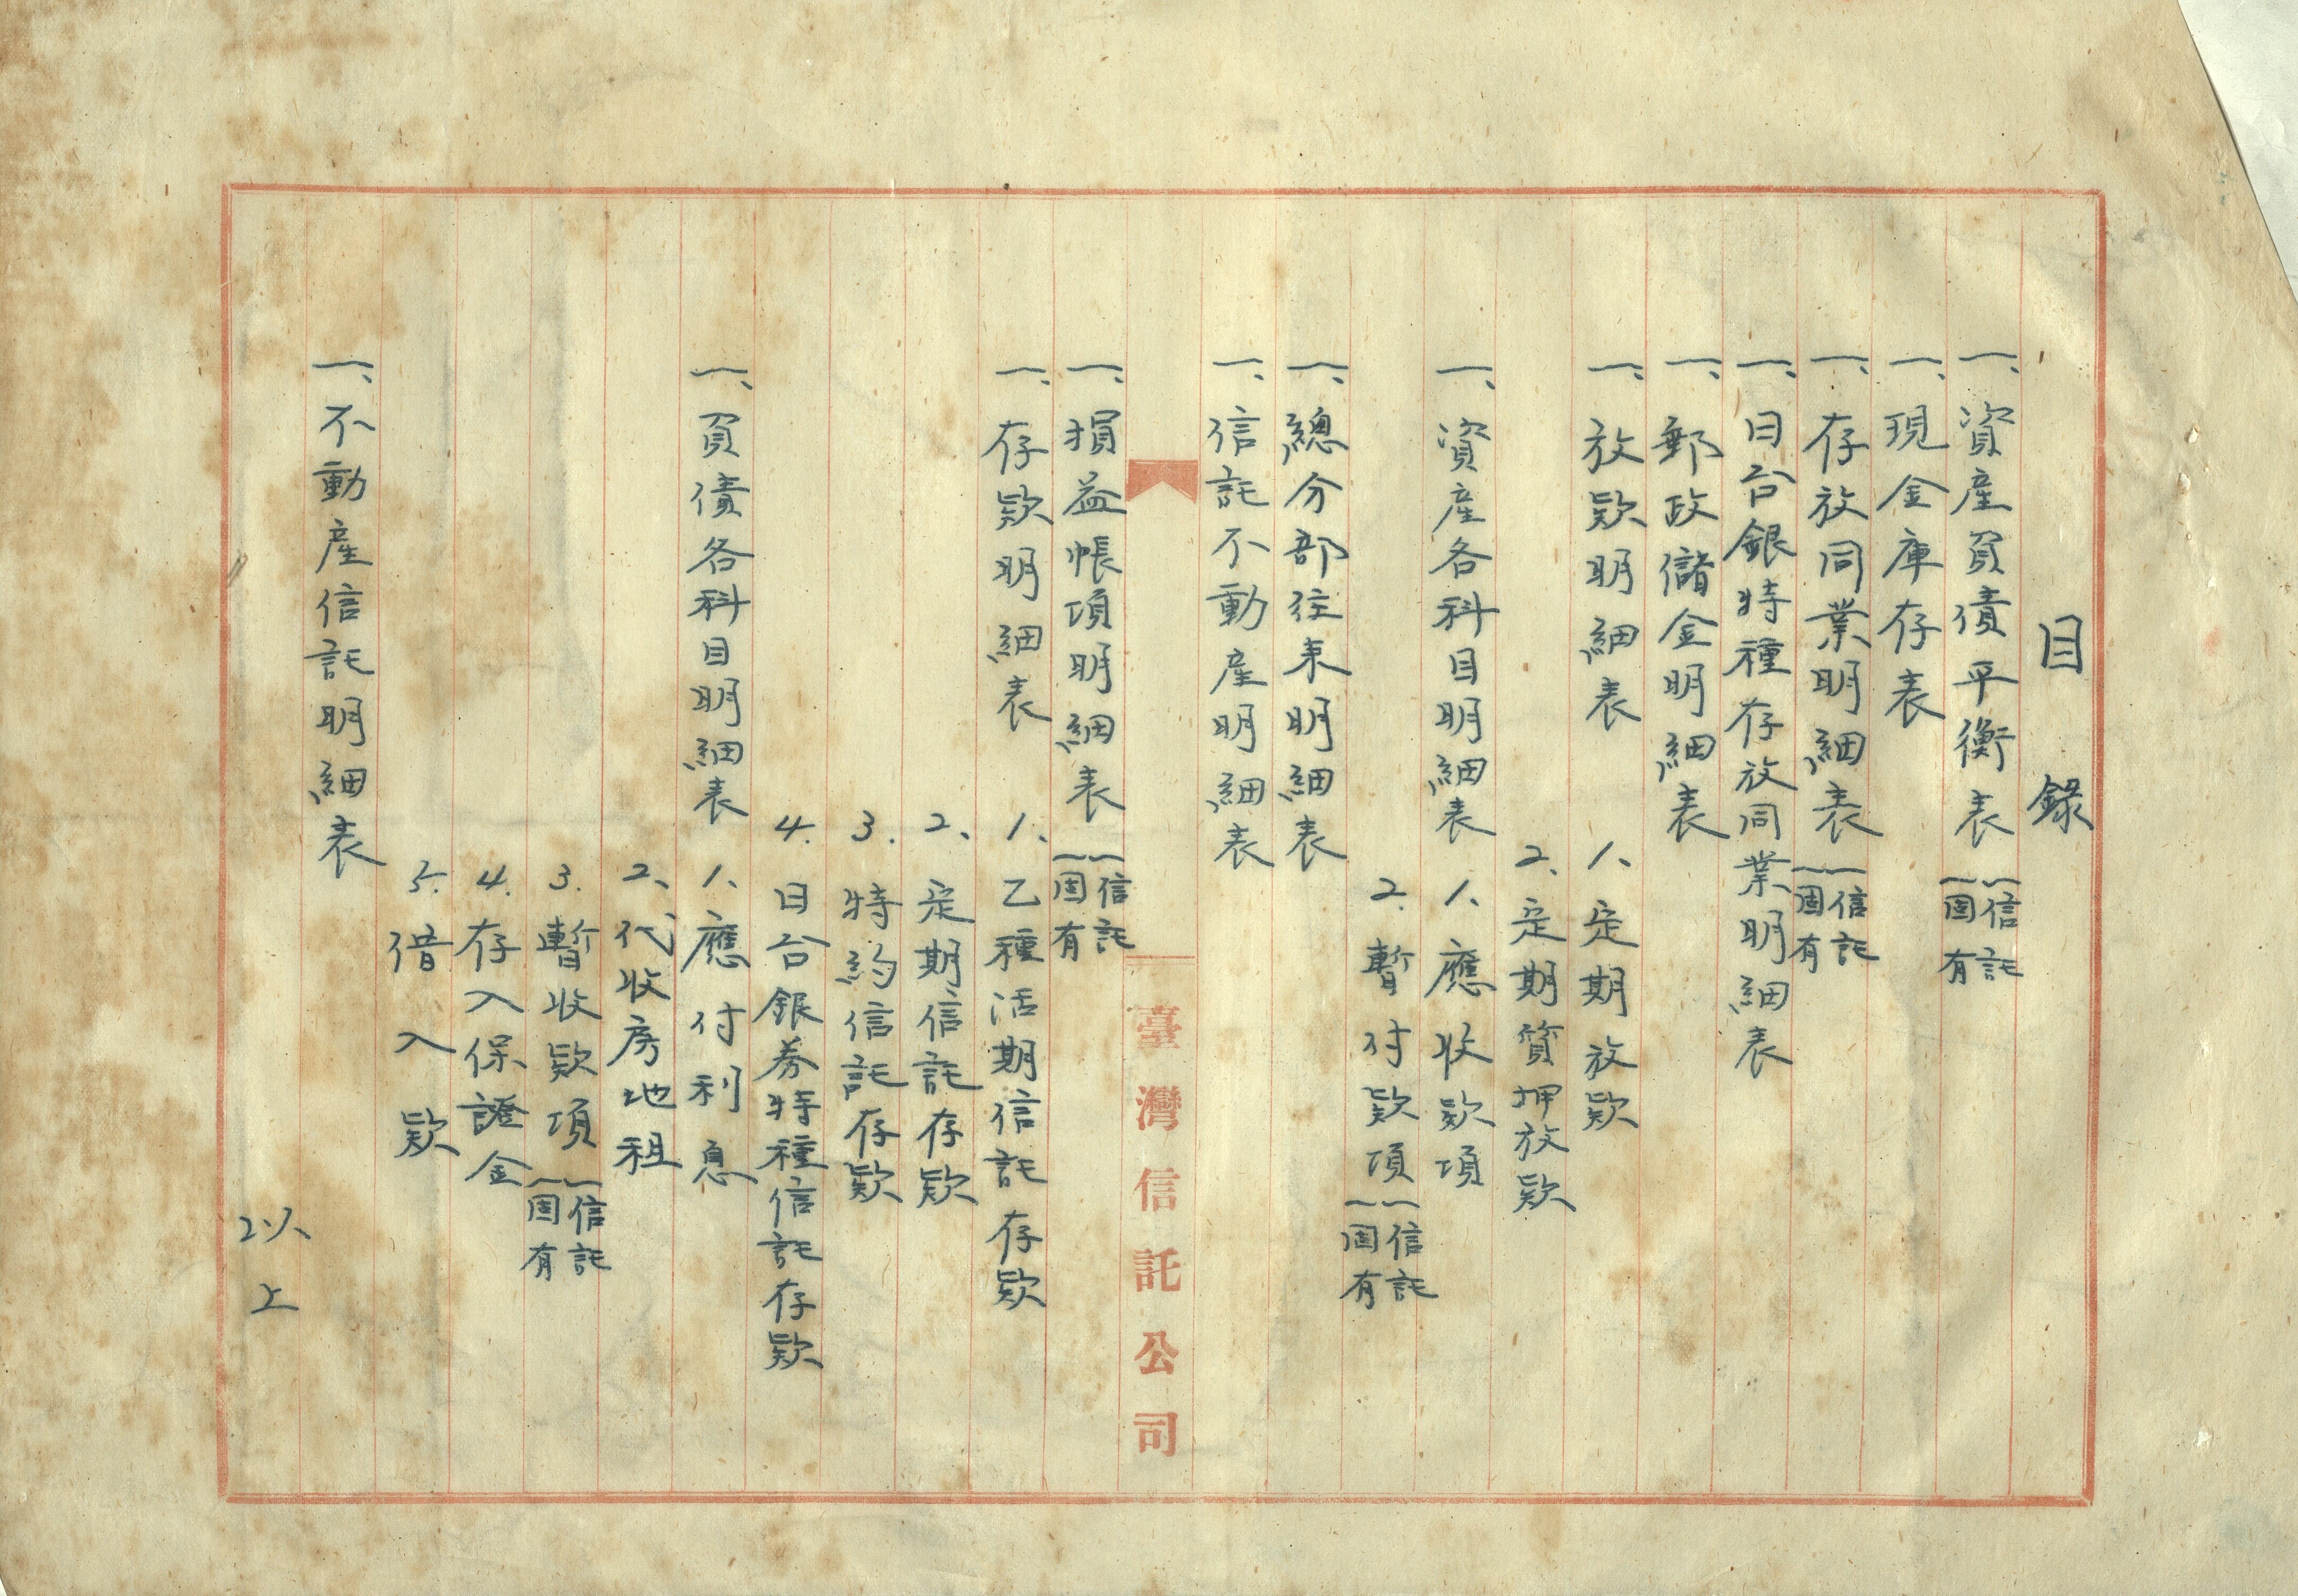 目錄
一、資產負債平衡表(信託(固有
一、現金庫存表
一、存放同業明細表(信託(固有
一、日台銀特種存放同業明細表
一、郵政儲金明細表
一、放欵明細表 1、定期放欵
2、定期質押放欵
一、資產各科目明細表 1、應收欵項
2.暫付欵項(信託(固有
一、總分部往来明細表
一、信託不動產明細表
臺灣信託公司
一、損益帳項明細表(信託(固有
一、存欵明細表 1、乙種活期信託存欵
2、定期信託存欵
3.特約信託存欵
4.日台銀券特種信託存欵
一、負債各科目明細表 1、應付利息
2、代收房地租
3.暫收欵項(信託(固有
4.存入保證金
5.借入欵
一、不動產信託明細表
以上